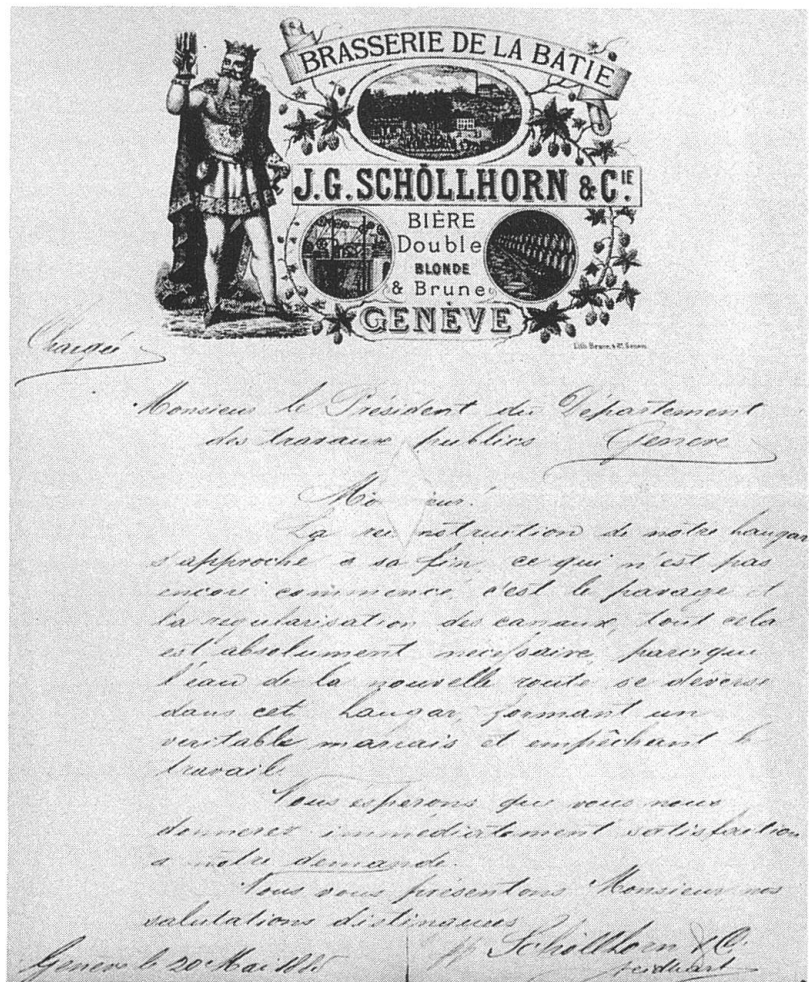 BRASSERIE DE LA BATIE
J.G. SCHÖLLHORN & CIE.
BIÈRE
Double
BLONDE
& Brune
GENÈVE
Chargée
Monsieur le Président du Département
des travaux publics Genève
Monsieur!
La reconstruction de notre hangar
s'approche à sa fin, ce qui n'est pas
encore commencé, c'est le pavage et
la regularisation des canaux, tout cela
est absolument nécessaire, parceque
l'eau de la nouvelle route se deverse
dans cet hangar, formant un
veritable marais et empêchant le
travail.
Nous esperons que vous nous
donnerez immédiatement satisfaction
a notre demande.
Nous vous présentons Monsieur nos
salutations distinguées
Genève le 20 Mai 188
Schöllhorn & Cie